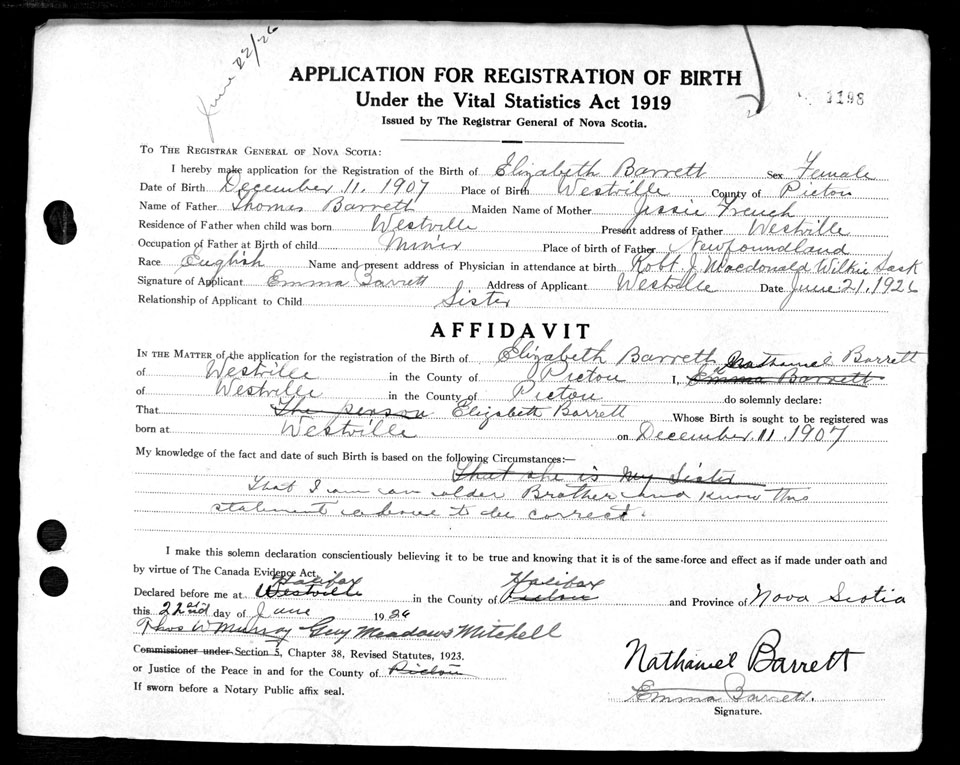 June 22/26
APPLICATION FOR REGISTRATION OF BIRTH
Under the Vital Statistics Act 1919
1198
Issued by The Registrar General of Nova Scotia.
TO THE REGISTRAR GENERAL OF NOVA SCOTIA:
I hereby make application for the Registration of the Birth of Elizabeth Barrett Sex Female
Date of Birth December 11. 1907 Place of Birth Westville County of Pictou
Name of Father Thomas Barrett Maiden Name of Mother Jessie French
Residence of Father when child was born Westville Present address of Father Westville
Occupation of Father at Birth of child Miner Place of birth of Father Newfoundland
Race English Name and present address of Physician in attendance at birth Robt. J. Macdonald Wilkie Sask
Signature of Applicant Emma Barrett Address of Applicant Westville Date June 21, 1926
Relationship of Applicant to Child Sister
AFFIDAVIT
IN THE MATTER of the application for the registration of the Birth of Elizabeth Barrett Nathaniel Barrett
of Westville in the County of Pictou I, Emma Barrett
of Westville in the County of Pictou do solemnly declare:
That The person Elizabeth Barrett Whose Birth is sought to be registered was
born at Westville on December 11. 1907
My knowledge of the fact and date of such Birth is based on the following Circumstances:—
That she is my Sister
That I am an older Brother and know this
statement above to be correct.
I make this solemn declaration conscientiously believing it to be true and knowing that it is of the same force and effect as if made under oath and
by virtue of The Canada Evidence Act.
Halifax Halifax
Declared before me at Westville in the County of Pictou and Province of Nova Scotia
this 22nd day of June 1926
Thos W Murray Guy Meadows Mitchell
Commissioner under Section 5, Chapter 38, Revised Statutes, 1923.
or Justice of the Peace in and for the County of Pictou
Nathaniel Barrett
If sworn before a Notary Public affix seal.
Emma Barrett.
Signature.